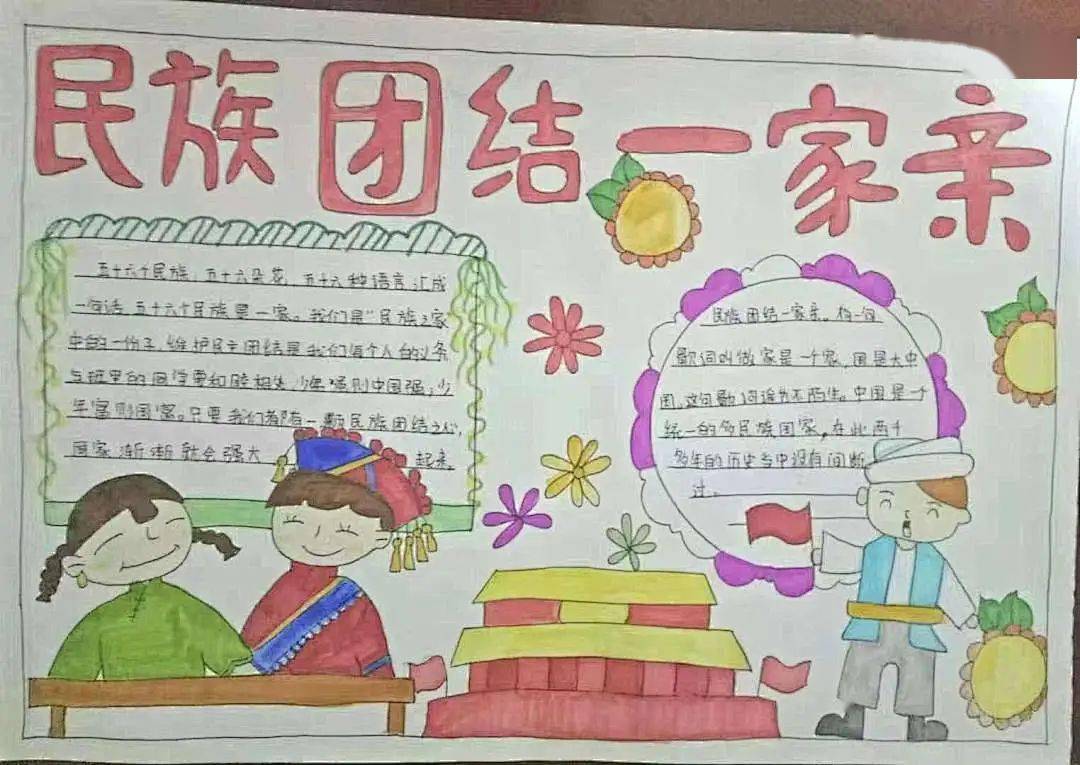 民族团结一家亲
五十六个民族，五十六朵花，五十六种语言汇成
一句话，五十六个民族是一家。我们是"民族之家
中的一份子，维护民主团结是我们每个人的义务
与班里的同学要和睦相处，少年强则中国强，少
年富则国富。只要我们都有一颗民族团结之心，
国家渐渐就会强大起来
民族团结一家亲。有一句
歌词叫做家是一个家，国是大中
国，这句歌词
中国是一个
统一的多民族国家，在此两千
多年的历史当中没有间断
过。